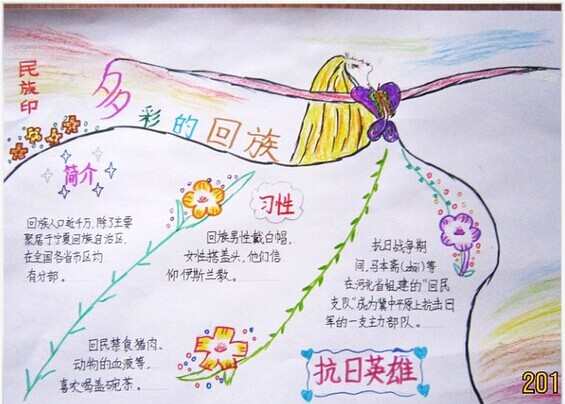 民族印
多彩的回族
简介
回族人口近千万，除了主要
聚居于宁夏回族自治区，
在全国各省市区均
有分部。
习性
回族男性戴白帽，
女性搭盖头，他们信
仰伊斯兰教。
回民禁食猪肉、
动物的血液等，
喜欢喝盖碗茶。
抗日战争期
间，马本斋(zhāi)等
在河北省组建的“回民
支队”成为冀中平原上抗击日
军的一支主力部队。
抗日英雄
201